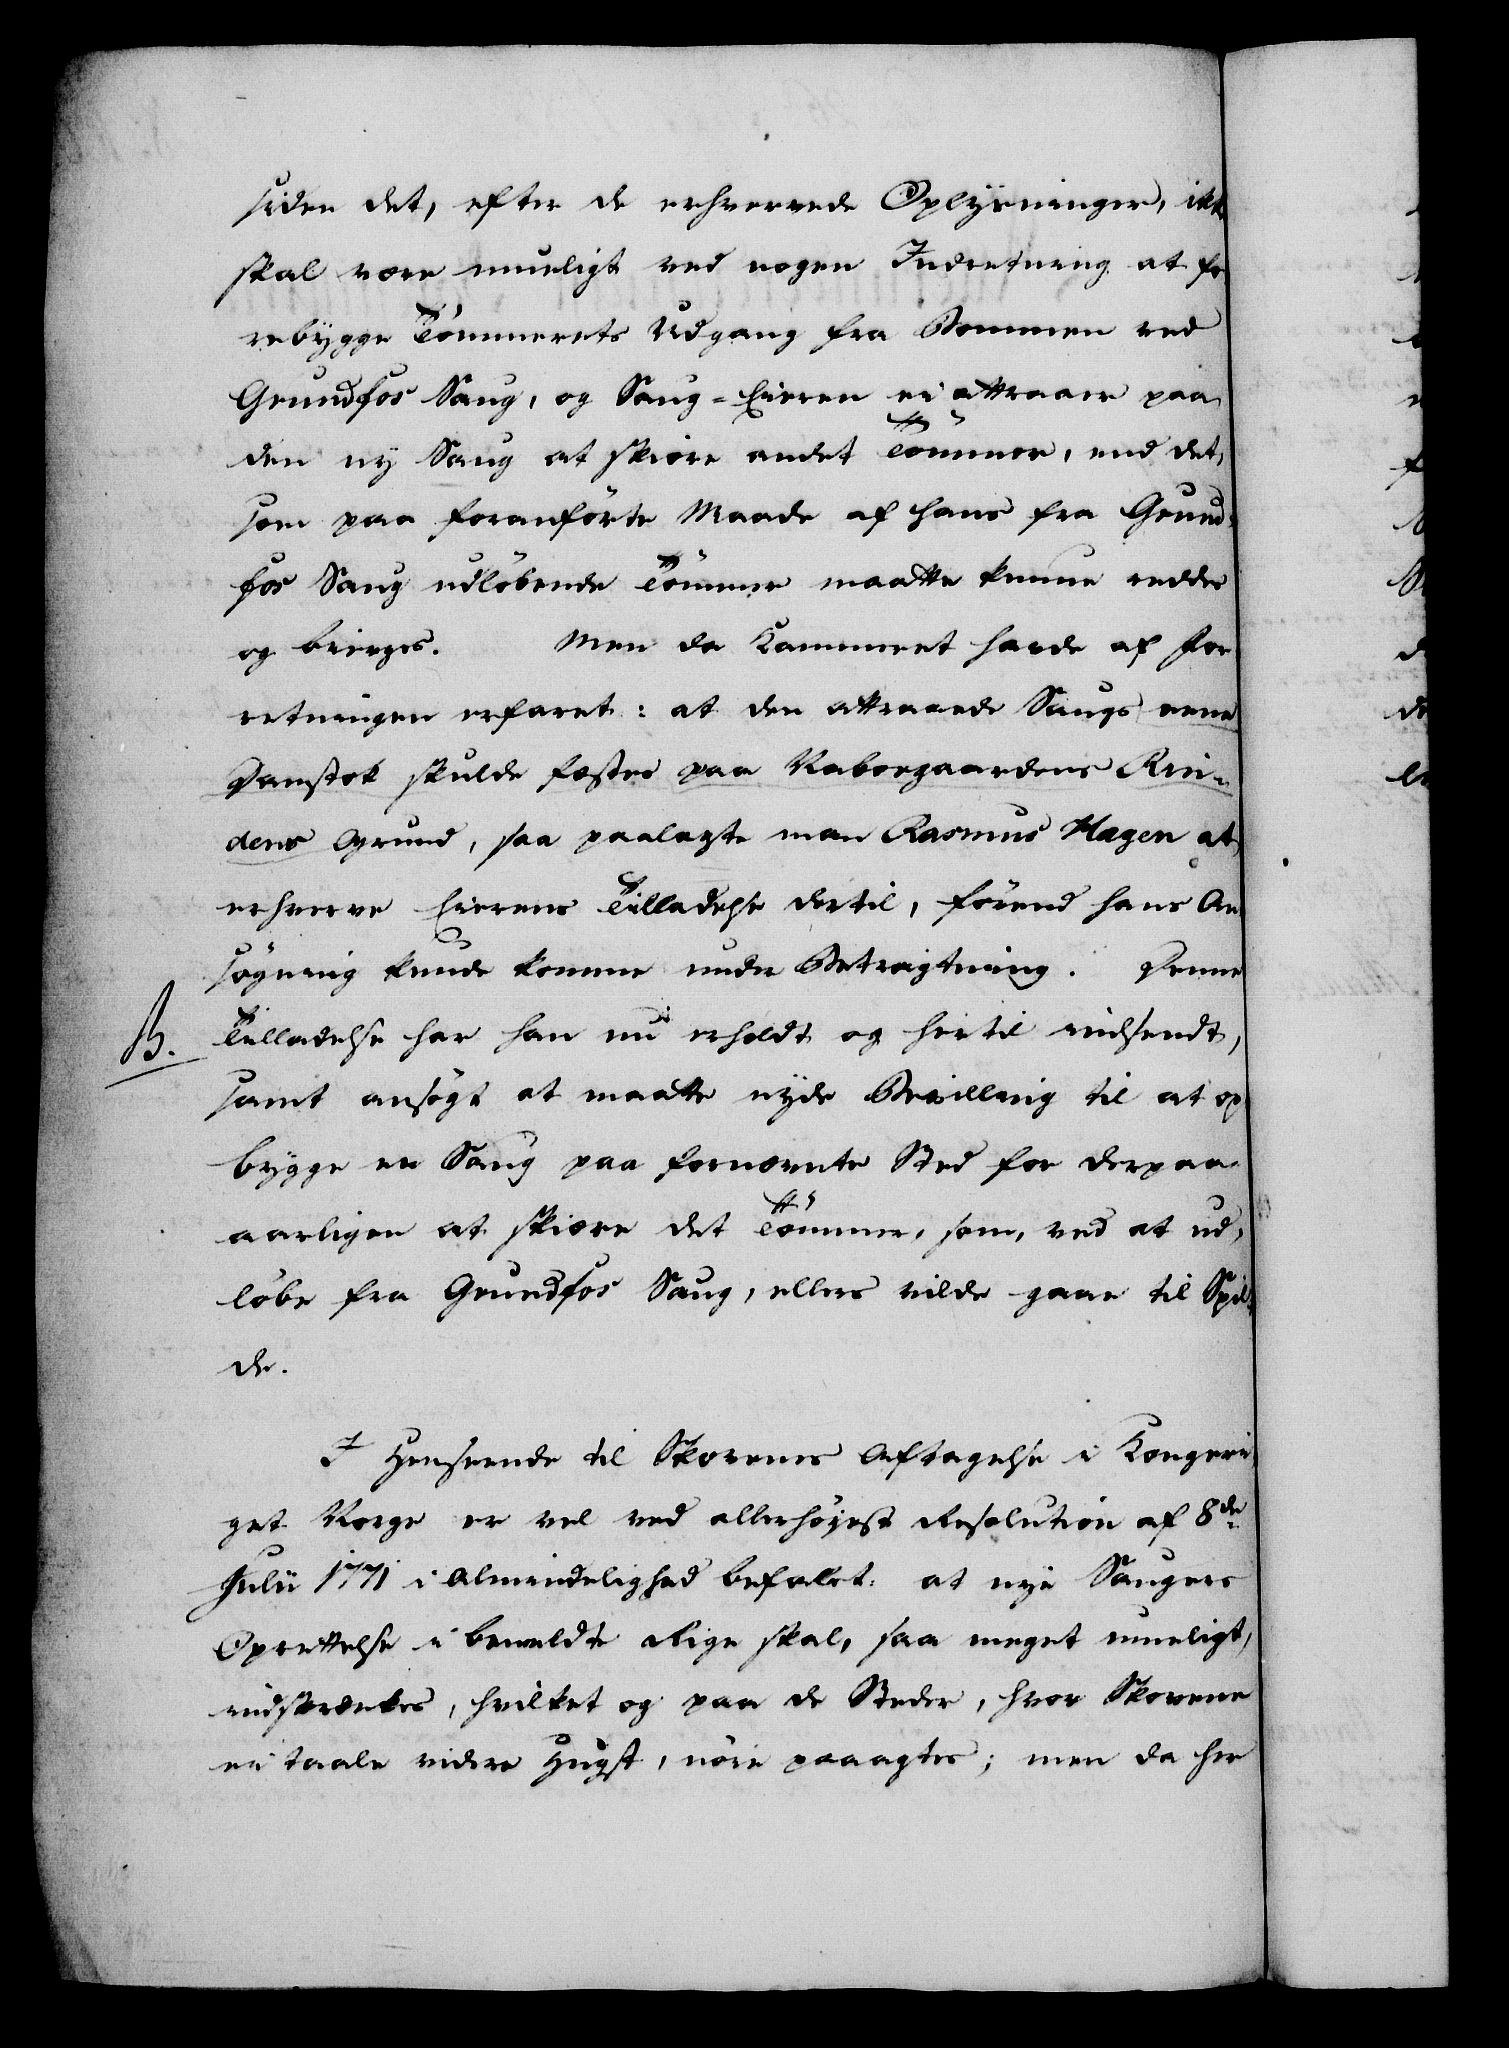 siden det, efter de erhvervede Oplysninger, ikke
skal være mueligt ved nogen Indretning at fo
rebygge Tömmerets Udgang fra Bommen ved
Grundfos Saug, og Saug-Eieren ei attraaer paa
den ny Saug at skiære andet Tömmer, end det,
som paa foranförte Maade af hans fra Grund-
fos Saug udlöbende Tömmer maatte kunne reddes
og bierges. Men da Kammeret havde af For
retningen erfaret: at den attraaede Saugs eene
Damstok skulde fæstes paa Naboegaardens Rin-
dens Grund, saa paalagte man Rasmus Hagen at
erhverve Eierens Tilladelse dertil, förend hans An
sögning kunde komme under Betragtning. Denne
B. Tilladelse har han nu erholdt og hertil indsendt,
samt ansögt at maatte nyde Bevilling til at op
bygge en Saug paa fornævnte Sted for derpaa
aarligen at skiære det Tömmer, som, ved at ud-
löbe fra Grundfos Saug, ellers vilde gaae til Spil-
de.
I Henseende til Skovenes Aftagelse i Kongeri
get Norge er vel ved allerhöyest Resolution af 8de
Julii 1771 i Almindelighed befalet: at nye Saugers
Oprettelse i bemeldte Rige skal, saa meget mueligt,
indskrænkes, hvilket og paa de Steder, hvor Skovene
ei taale videre Hugst, nöie paaagtes; men da her